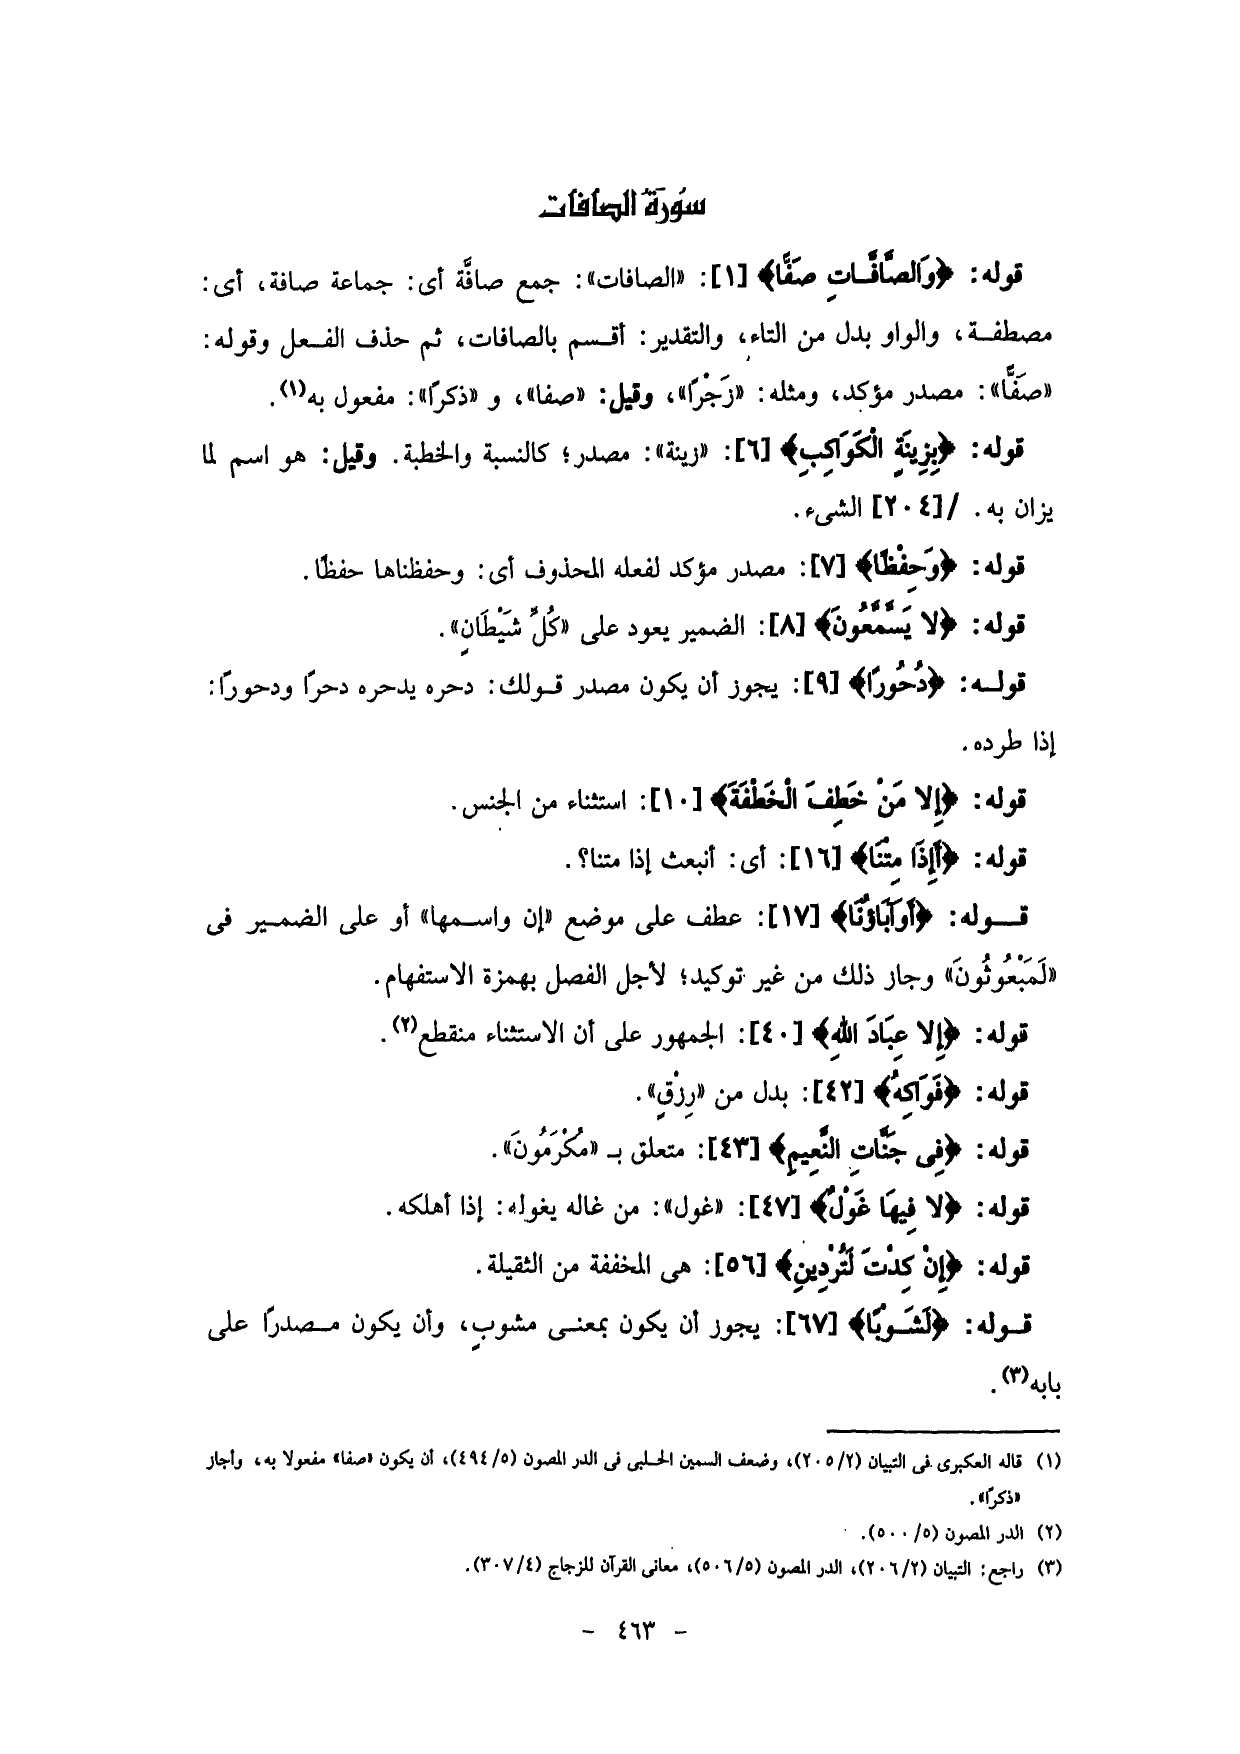 سورة الصافات
قوله: ﴿وَالصَّافَّاتِ صَفًّا﴾ [١]: «الصافات»: جمع صافَّة أى: جماعة صافة، أى:
مصطفة، والواو بدل من التاء، والتقدير: أقسم بالصافات، ثم حذف الفعل وقوله:
«صَفًّا»: مصدر مؤكد، ومثله: «زَجْرًا»، وقيل: «صفا»، و «ذكرًا»: مفعول به(١).
قوله: ﴿بِزِينَةٍ الْكَوَاكِبِ﴾ [٦]: «زينة»: مصدر؛ كالنسبة والخطبة. وقيل: هو اسم لما
يزان به. /[٢٠٤] الشىء.
قوله: ﴿وَحِفْظًا﴾ [٧]: مصدر مؤكد لفعله المحذوف أى: وحفظناها حفظًا.
قوله: ﴿لا يَسَّمَّعُونَ﴾ [٨]: الضمير يعود على «كُلِّ شَيْطَانٍ».
قوله: ﴿دُحُورًا﴾ [٩]: يجوز أن يكون مصدر قولك: دحره يدحره دحرًا ودحورًا:
إذا طرده.
قوله: ﴿إِلا مَنْ خَطِفَ الْخَطْفَةَ﴾ [١٠]: استثناء من الجنس.
قوله: ﴿أَإِذَا مِتْنَا﴾ [١٦]: أى: أنبعث إذا متنا؟.
قوله: ﴿أَوَآبَاؤُنَا﴾ [١٧]: عطف على موضع «إن واسمها» أو على الضمير فى
«لَمَبْعُوثُونَ» وجاز ذلك من غير توكيد؛ لأجل الفصل بهمزة الاستفهام.
قوله: ﴿إِلا عِبَادَ اللهِ﴾ [٤٠]: الجمهور على أن الاستثناء منقطع(٢).
قوله: ﴿فَوَاكِهُ﴾ [٤٢]: بدل من «رِزْقٍ».
قوله: ﴿فِى جَنَّاتِ النَّعِيمِ﴾ [٤٣]: متعلق بـ «مُكْرَمُونَ».
قوله: ﴿لا فِيهَا غَوْلٌ﴾ [٤٧]: «غول»: من غاله يغوله: إذا أهلكه.
قوله: ﴿إِنْ كِدْتَ لَتُرْدِينِ﴾ [٥٦]: هى المخففة من الثقيلة.
قوله: ﴿لَشَوْبًا﴾ [٦٧]: يجوز أن يكون بمعنى مشوبٍ، وأن يكون مصدرًا على
بابه(٣).
(١) قاله العكبرى فى التبيان (٢٠٥/٢)، وضعف السمين الحلبى فى الدر المصون (٤٩٤/٥)، أن يكون «صفا» مفعولا به، وأجاز
«ذكرًا».
(٢) الدر المصون (٥٠٠/٥).
(٣) راجع: التبيان (٢٠٦/٢)، الدر المصون (٥٠٦/٥)، معانى القرآن للزجاج (٣٠٧/٤).
- ٤٦٣ -